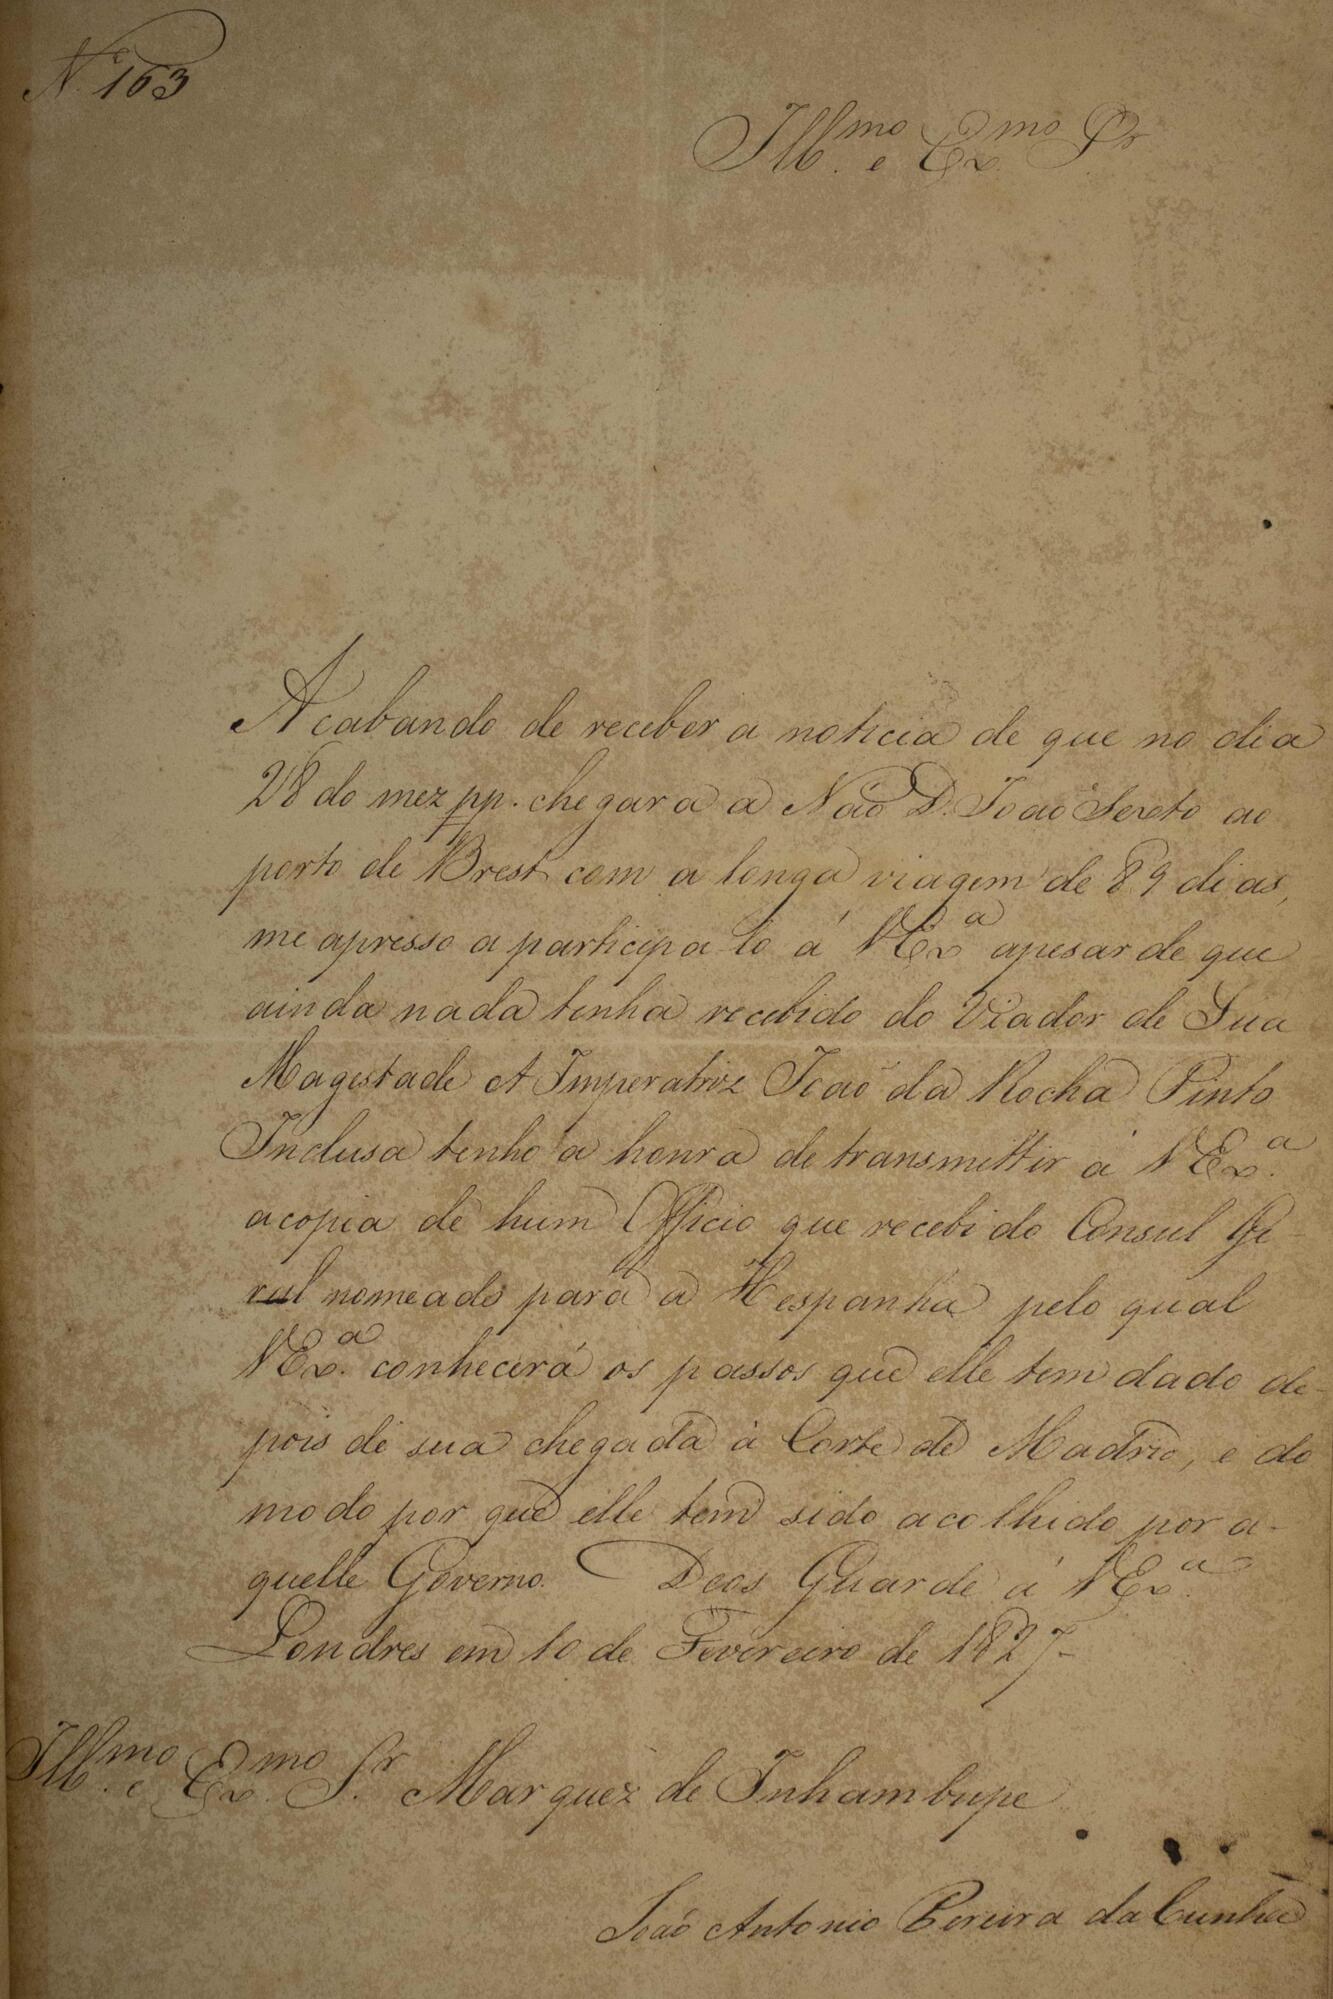 N.º 163
Ill.mo e Ex.mo Sr
Acabando de receber a noticia de que no dia
28 do mez pp. chegara a Náo D. João Sexto ao
porto de Brest com a longa viagem de 89 dias,
me apresso a participalo á VEx.a apesar de que
ainda nada tenha recebido do Viador de Sua
Magestade A Imperatriz João da Rocha Pinto
Inclusa tenho a honra de transmittir á VEx.a
a copia de hum Officio que recebi do Consul Ge-
ral nomeado para a Hespanha pelo qual
VEx.a conhecerá os passos que elle tem dado de-
pois de sua chegada á Corte de Madrid, e do
modo por que elle tem sido acolhido por a-
quelle Governo. Deos Guarde á VEx.a
Londres em 10 de Fevereiro de 1827-
Ill.mo e Ex.mo S.r Marquez de Inhambupe
João Antonio Pereira da Cunha